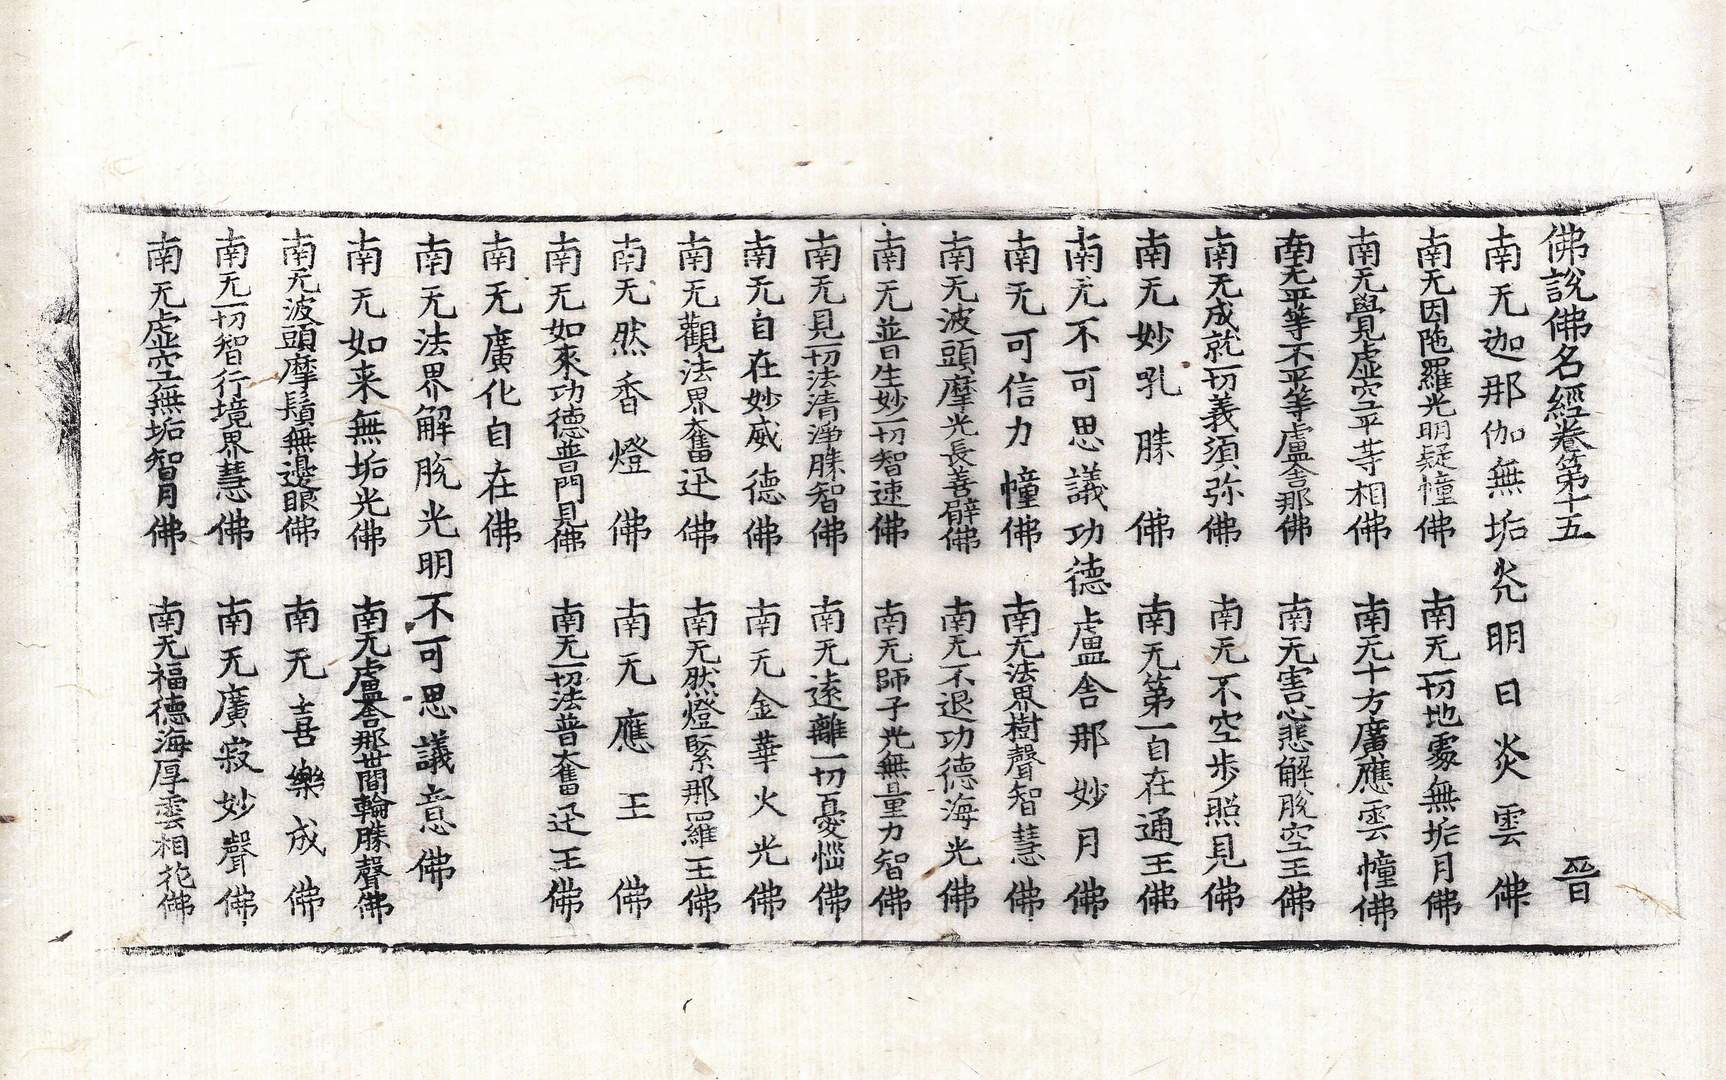 佛說佛名經卷第十五　晉
南无迦那伽無垢光明日炎雲佛
南无因陁羅光明疑幢佛　南无一切地處無垢月佛
南无覺虛空平等相佛　南无十方廣應雲幢佛
南无平等不平等盧舍那佛　南无害悲解脫空王佛
南无成就一切義須弥佛　南无不空步照見佛
南无妙吼勝佛　南无第一自在通王佛
南无不可思議功德盧舍那妙月佛
南无可信力幢佛　南无法界樹聲智慧佛
南无波頭摩光長善臂佛　南无不退功德海光佛
南无普生妙一切智速佛　南无師子光無量力智佛
南无見一切法清淨勝智佛　南无遠離一切憂惱佛
南无自在妙威德佛　南无金華火光佛
南无觀法界奮迅佛　南无然燈緊那羅王佛
南无然香燈佛　南无應王佛
南无如來功德普門見佛　南无一切法普奮迅王佛
南无廣化自在佛
南无法界解脫光明不可思議意佛
南无如来無垢光佛　南无盧舍那世間輪勝聲佛
南无波頭摩鬚無邊眼佛　南无喜樂成佛
南无一切智行境界慧佛　南无廣寂妙聲佛
南无虛空無垢智月佛　南无福德海厚雲相花佛